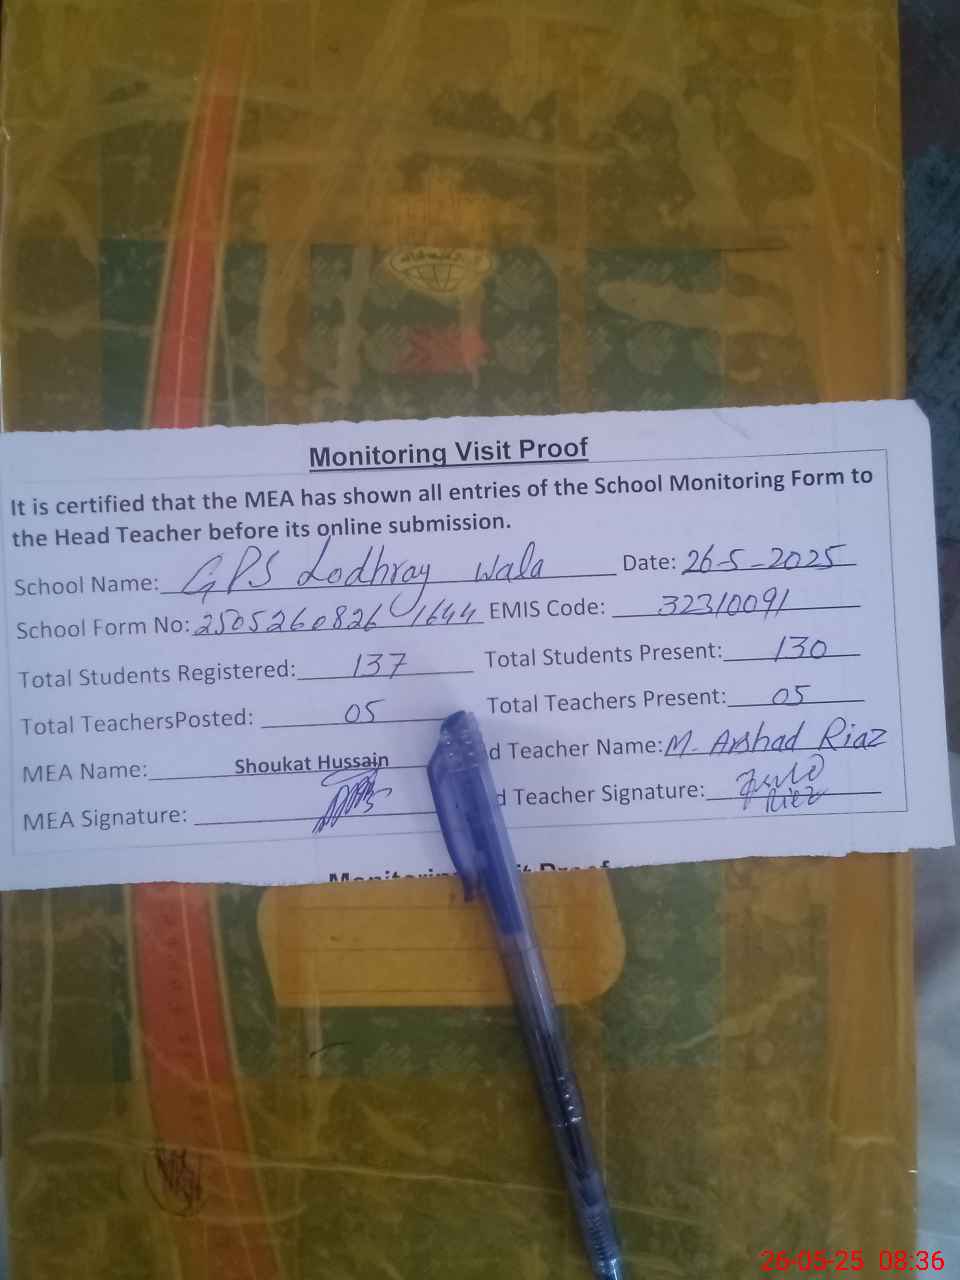 Monitoring Visit Proof
It is certified that the MEA has shown all entries of the School Monitoring Form to
the Head Teacher before its online submission.
School Name: GPS Lodhray wala Date: 26-5-2025
School Form No: 25052608261644 EMIS Code: 32310091
Total Students Registered: 137 Total Students Present: 130
Total TeachersPosted: 05 Total Teachers Present: 05
MEA Name: Shoukat Hussain d Teacher Name: M. Arshad Riaz
MEA Signature: d Teacher Signature:
Monitoring Visit Proof
26-05-25 08:36